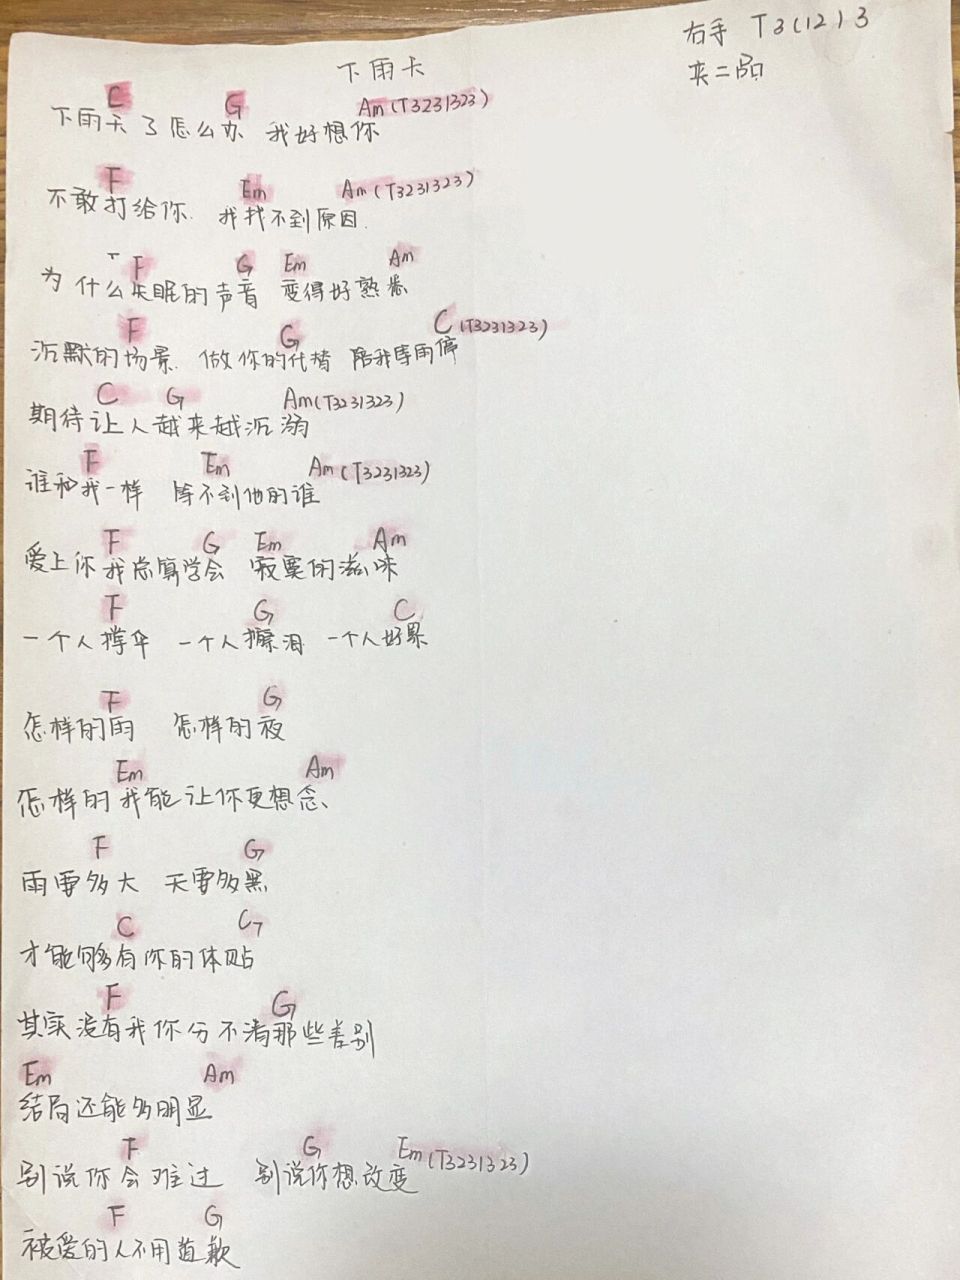 下雨天
右手 T3(12)3
夹二品
C G Am(T3231323)
下雨天了怎么办 我好想你
F Em Am(T3231323)
不敢打给你. 我找不到原因.
F G Em Am
为什么失眠的声音 变得好熟悉
F G C(T3231323)
沉默的场景. 做你的代替 陪我等雨停
C G Am(T3231323)
期待让人越来越沉溺
F Em Am(T3231323)
谁和我一样 等不到他的谁
F G Em Am
爱上你我总算学会 寂寞的滋味
F G C
一个人撑伞 一个人擦泪 一个人好累
F G
怎样的雨 怎样的夜
Em Am
怎样的我能让你更想念、
F G
雨要多大 天要多黑
C C7
才能够有你的体贴
F G
其实没有我你分不清那些差别
Em Am
结局还能多明显
F G Em(T3231323)
别说你会难过 别说你想改变
F G
被爱的人不用道歉